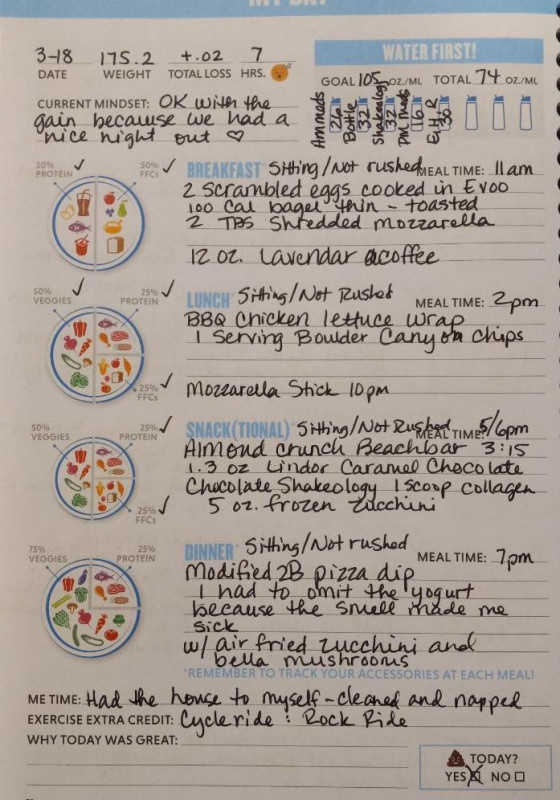 MY DAY
3-18 175.2 +.02 7
DATE WEIGHT TOTAL LOSS HRS.
WATER FIRST!
GOAL 105 OZ./ML TOTAL 74 OZ/ML
Bottle 32 Shakeology 32 16 30
CURRENT MINDSET: OK with the
gain because we had a
nice night out ♡
50% PROTEIN ✓ 50% FFCs ✓
BREAKFAST Sitting/Not rushed MEAL TIME: 11am
2 Scrambled eggs cooked in Evoo
100 Cal bagel thin - toasted
2 TBS Shredded mozzarella
12 oz. Lavendar coffee
50% VEGGIES ✓ 25% PROTEIN ✓ 25% FFCs ✓
LUNCH Sitting/Not Rushed MEAL TIME: 2pm
BBQ Chicken lettuce wrap
1 Serving Boulder Canyon chips
Mozzarella Stick 10pm
50% VEGGIES ✓ 25% PROTEIN ✓ 25% FFCs ✓
SNACK(TIONAL) Sitting/Not Rushed MEAL TIME: 5/6pm
Almond crunch Beachbar 3:15
1.3 oz Lindor Caramel Chocolate
Chocolate Shakeology 1 scoop collagen
5 oz. frozen zucchini
75% VEGGIES 25% PROTEIN
DINNER Sitting/Not rushed
MEAL TIME: 7pm
Modified 2B pizza dip
I had to omit the yogurt
because the smell made me
sick
w/ air fried zucchini and
bella mushrooms
*REMEMBER TO TRACK YOUR ACCESSORIES AT EACH MEAL!
ME TIME: Had the house to myself - cleaned and napped
EXERCISE EXTRA CREDIT: Cycle ride : Rock Ride
WHY TODAY WAS GREAT:
TODAY?
YES NO